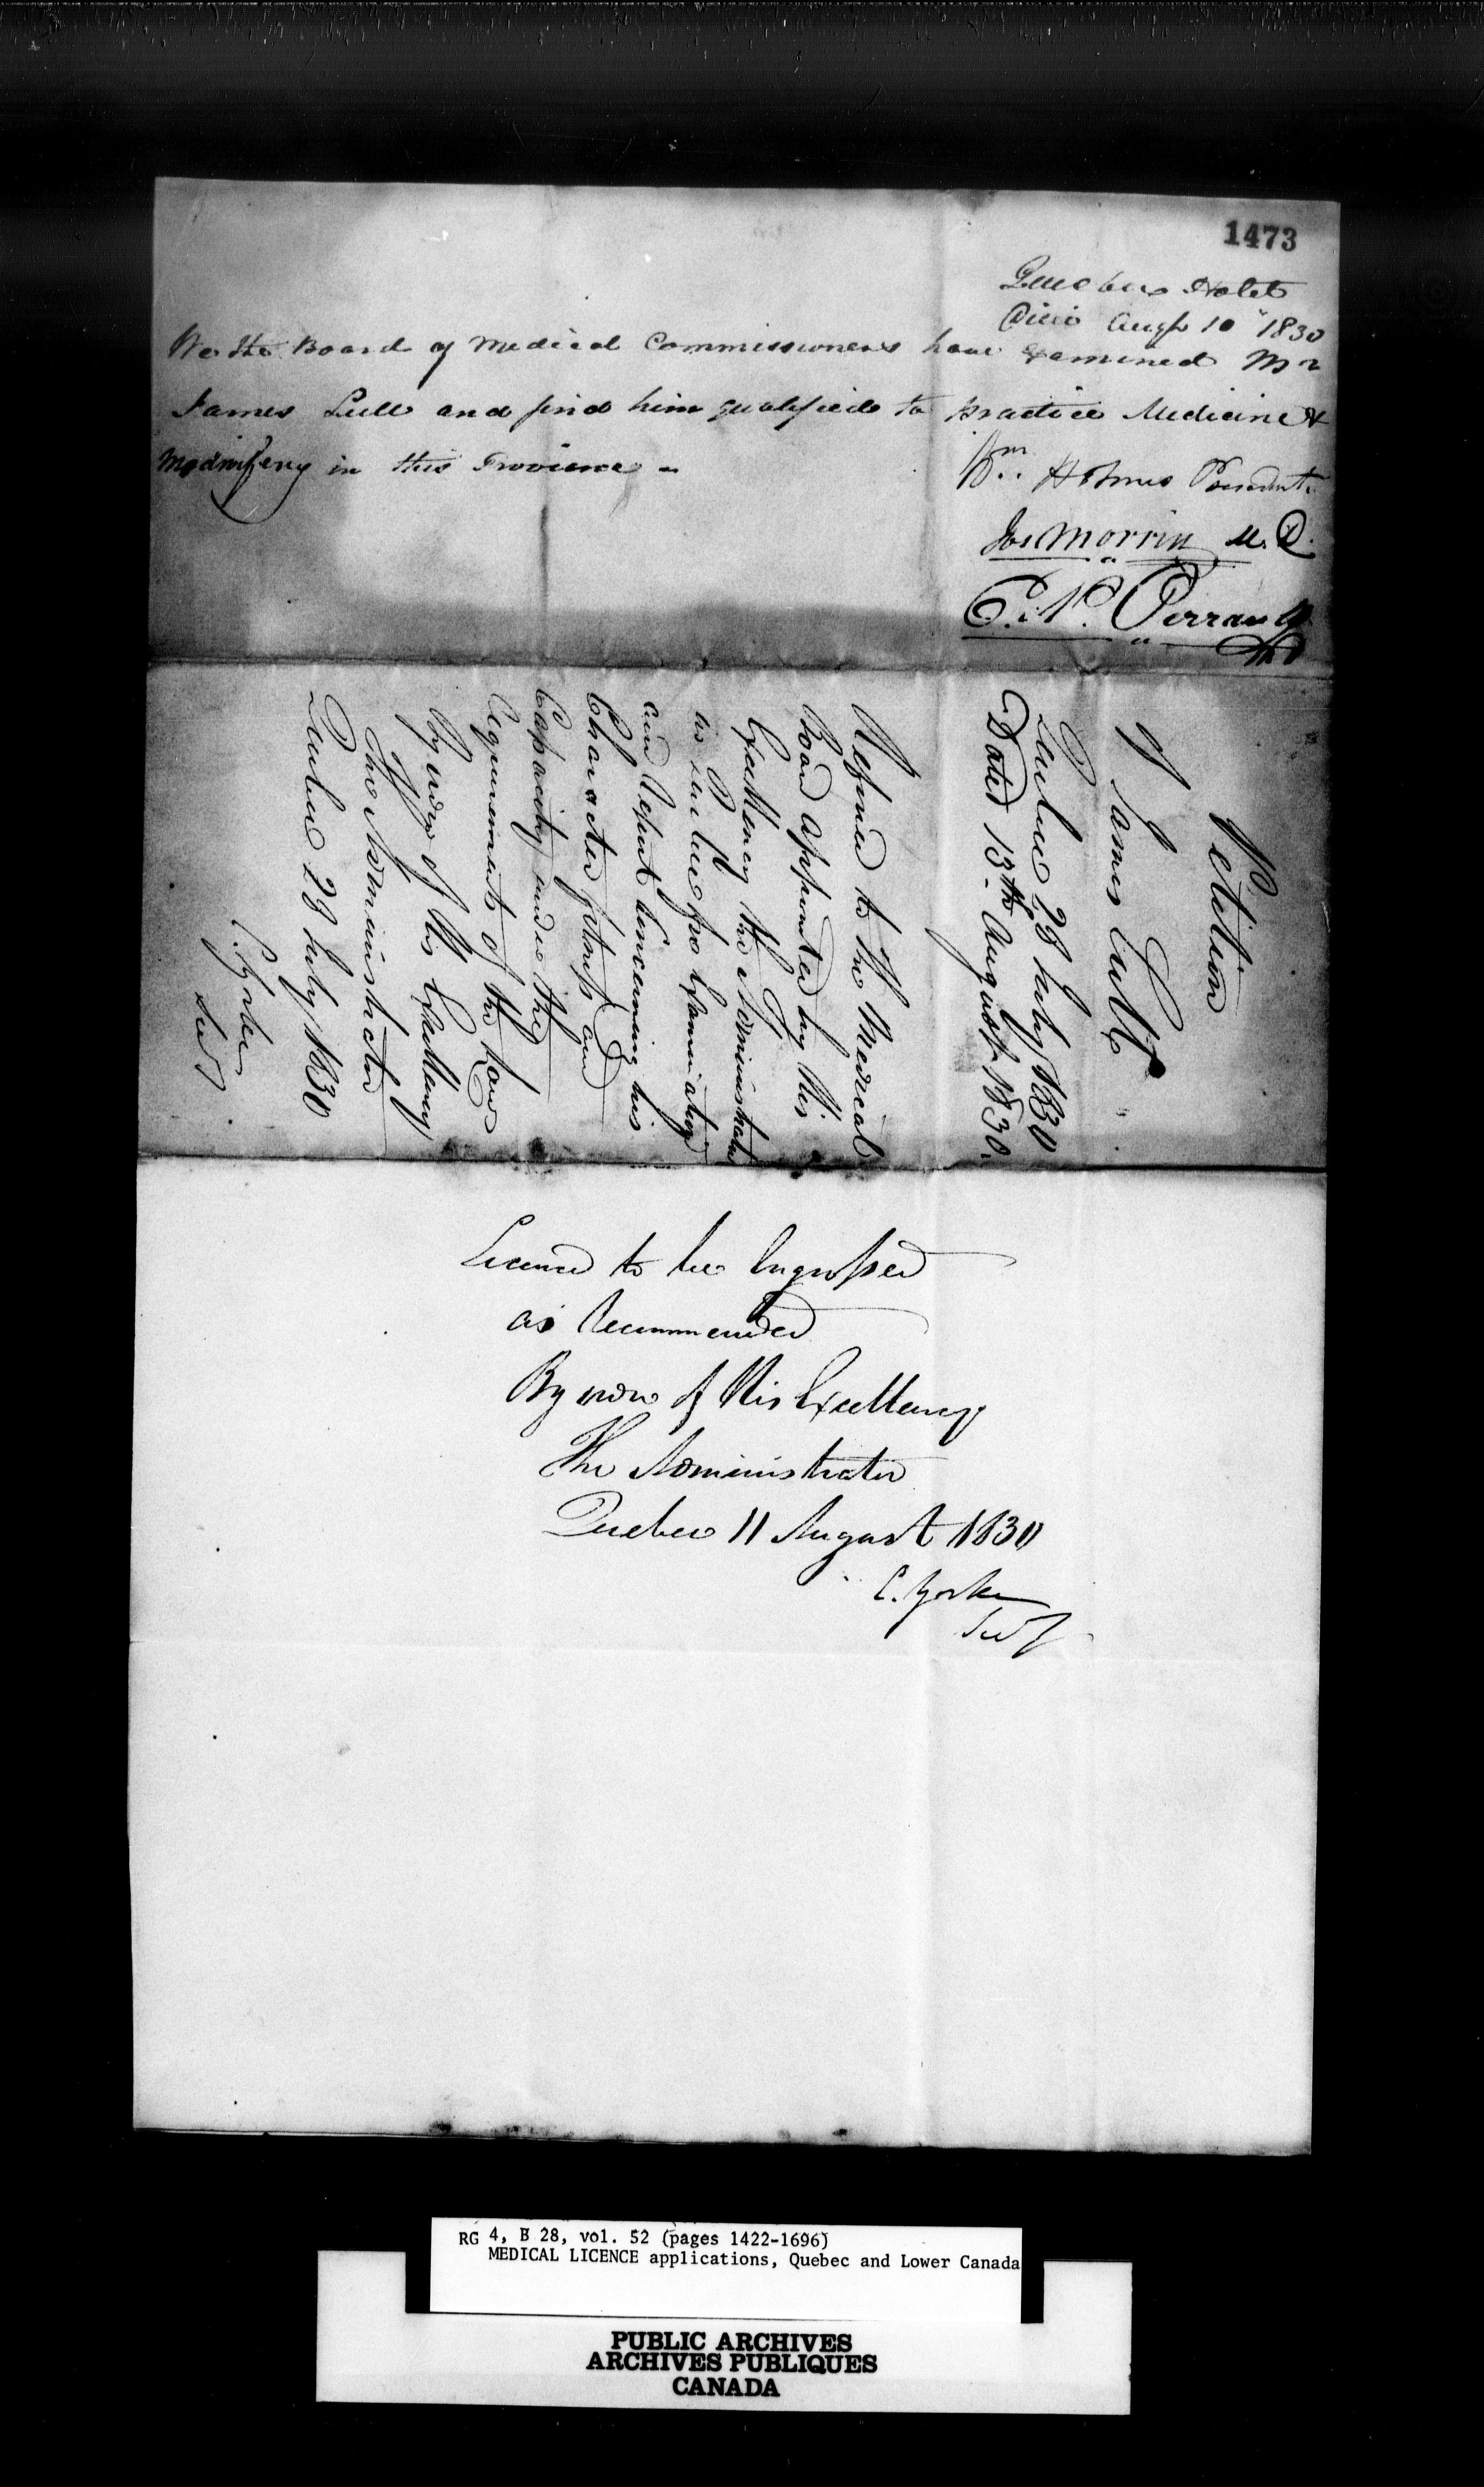 1473
Quebec Hotel
Dieu Augt 10th 1830
We the Board of Medical Commissioners have examined Mr
James Lull and find him qualified to practice Medicine &
Midwifery in this Province -
Wm. Holmes President
Jos Morrin M.D.
C. N. Perrault
MD
Petition
of James Lull
Quebec 28 July 1830
Dated 13th August 1830.
Referred to the Medical
Board appointed by His
Excellency the Administrator
at Quebec for Examination
and Report concerning his
Character fitness and
Capacity under the
requirements of the Law
By order of His Excellency
The Administrator
Quebec 28 July 1830
C. Yorke
Secy
Licence to be Engrossed
as Recommended
By order of His Excellency
The Administrator
Quebec 11 August 1830
C. Yorke
Secy
RG 4, B 28, vol. 52 (pages 1422-1696)
MEDICAL LICENCE applications, Quebec and Lower Canada
PUBLIC ARCHIVES
ARCHIVES PUBLIQUES
CANADA